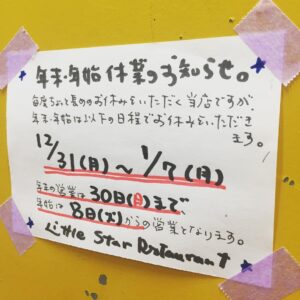 年末・年始休業のお知らせ。
毎度ちょと長めのお休みをいただく当店ですが、
年末・年始は以下の日程でお休みをいただき
ます。
12/31(月)〜1/7(月)
年末の営業は30日(日)まで、
年始は8日(火)からの営業となります。
Little Star Restaurant